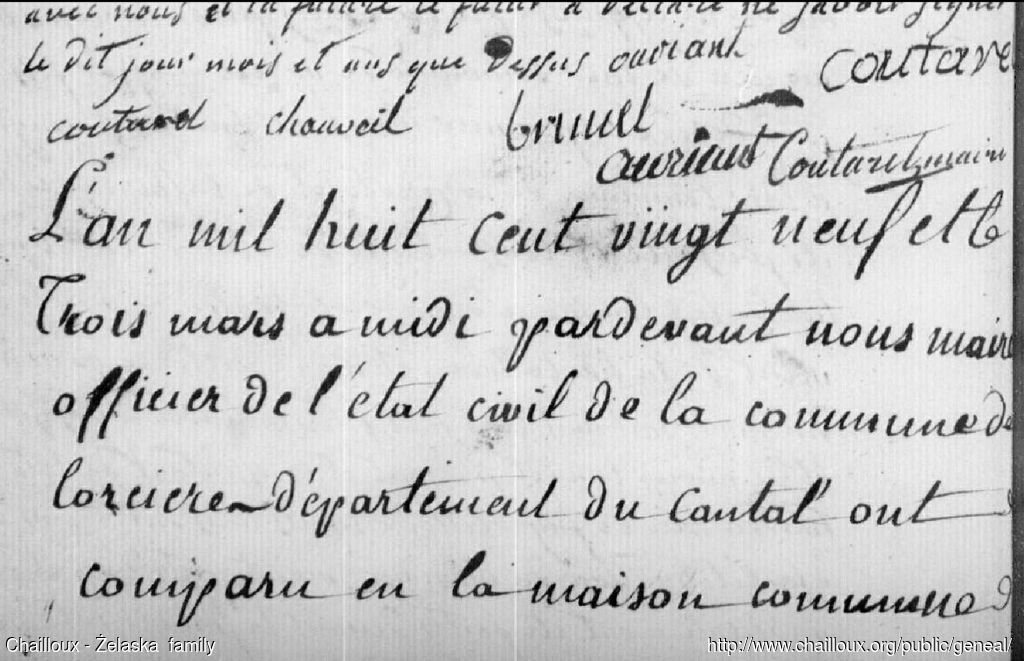 avec nous et la future le futur a déclaré ne savoir signer
le dit jour mois et ans que dessus auriant
coutare
coutared chauveil brunel
auriant Coutaret maire
L'an mil huit cent vingt neuf et le
Trois mars a midi pardevant nous maire
officier de l'état civil de la commune de
lorciere département du Cantal ont
comparu en la maison commune
Chailloux - Żelaska family
http://www.chailloux.org/public/geneal/